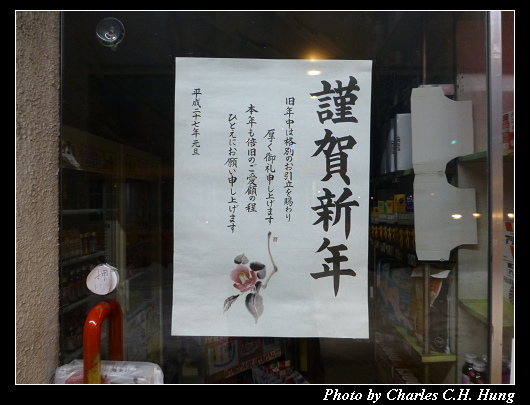 謹賀新年
旧年中は格別のお引立を賜わり
厚く御礼申し上げます
本年も倍旧のご愛顧の程
ひとえにお願い申し上げます
平成二十七年 元旦
押
Photo by Charles C.H. Hung